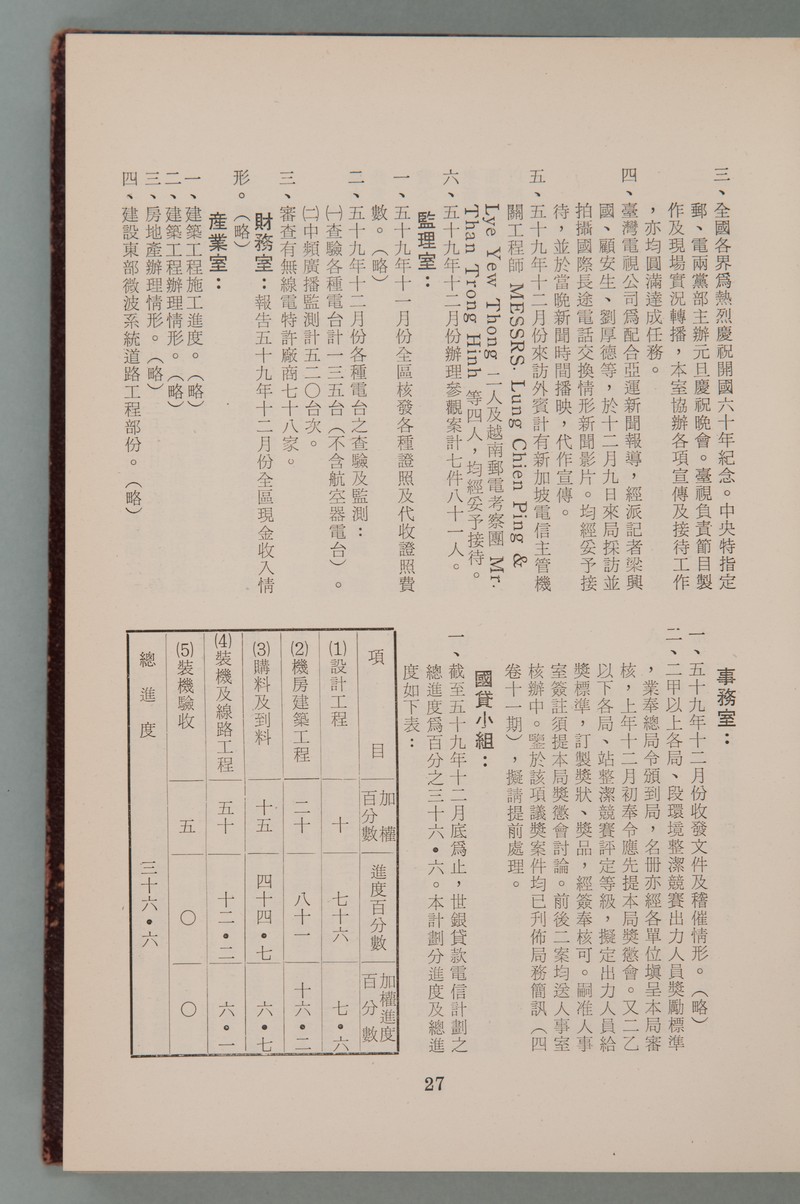 三、全國各界爲熱烈慶祝開國六十年紀念。中央特指定
郵、電兩黨部主辦元旦慶祝晚會。臺視負責節目製
作及現場實況轉播，本室協辦各項宣傳及接待工作
，亦均圓滿達成任務。
四、臺灣電視公司爲配合亞運新聞報導，經派記者梁興
國、顧安生、劉厚德等，於十二月九日來局採訪並
拍攝國際長途電話交換情形新聞影片。均經妥予接
待，並於當晚新聞時間播映，代作宣傳。
五、五十九年十二月份來訪外賓計有新加坡電信主管機
關工程師 MESSRS. Lung Chien Ping &
Lye Yew Thong 二人及越南郵電考察團 Mr.
Than Trong Hinh 等四人，均經妥予接待。
六、五十九年十二月份辦理參觀案計七件八十一人。
監理室：
一、五十九年十一月份全區核發各種證照及代收證照費
數。（略）
二、五十九年十二月份各種電台之查驗及監測：
㈠查驗各種電台計一三五台（不含航空器電台）。
㈡中頻廣播監測計五二〇台次。
三、審查有無線電特許廠商七十八家。
財務室：報告五十九年十二月份全區現金收入情
形。（略）
產業室：
一、建築工程施工進度。（略）
二、建築工程辦理情形。（略）
三、房地產辦理情形。（略）
四、建設東部微波系統道路工程部份。（略）
事務室：
一、五十九年十二月份收發文件及稽催情形。（略）
二、二甲以上各局、段環境整潔競賽出力人員獎勵標準
，業奉總局令頒到局，名冊亦經各單位塡呈本局審
核，上年十二月初奉令應先提本局獎懲會。又二乙
以下各局、站整潔競賽評定等級，擬定出力人員給
獎標準，訂製獎狀、獎品，經簽奉核可。嗣准人事
室簽註須提本局獎懲會討論。前後二案均送人事室
核辦中。鑒於該項議獎案件均已刋佈局務簡訊（四
卷十一期），擬請提前處理。
國貸小組：
一、截至五十九年十二月底爲止，世銀貸款電信計劃之
總進度爲百分之三十六•六。本計劃分進度及總進
度如下表：
項目 加權百分數 進度百分數 加權進度百分數
(1)設計工程 十 七十六 七•六
(2)機房建築工程 二十 八十一 十六•二
(3)購料及到料 十五 四十四•七 六•七
(4)裝機及線路工程 五十 十二•二 六•一
(5)裝機驗收 五 〇 〇
總進度 三十六•六
27